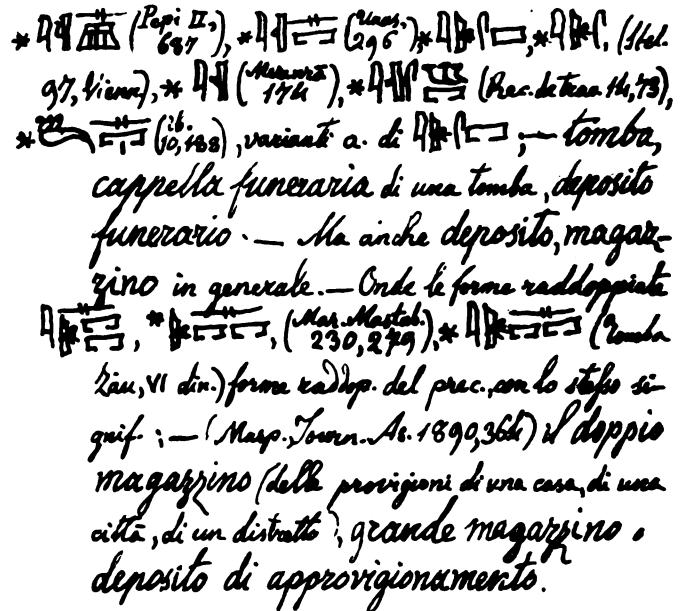 * (Pepi II, 687), * (Unas, 296) * , * , (Stel.
97, Vienn), * (Merenrâ 174), * (Rec. de trav 14, 73),
* (ib. 10, 188), varianti a. di ; — tomba,
cappella funeraria di una tomba, deposito
funerario. — Ma anche deposito, magaz-
zino in generale. — Onde le forme raddoppiate
, * , (Mar. Mastab. 230, 279), * (Tomba
Zâu, VI din.) forme raddop. del prec., con lo stesso si-
gnif. ; — (Masp. Journ. As. 1890, 364) il doppio
magazzino (delle provigioni di una casa, di una
città, di un distretto), grande magazzino.
deposito di approvigionamento.